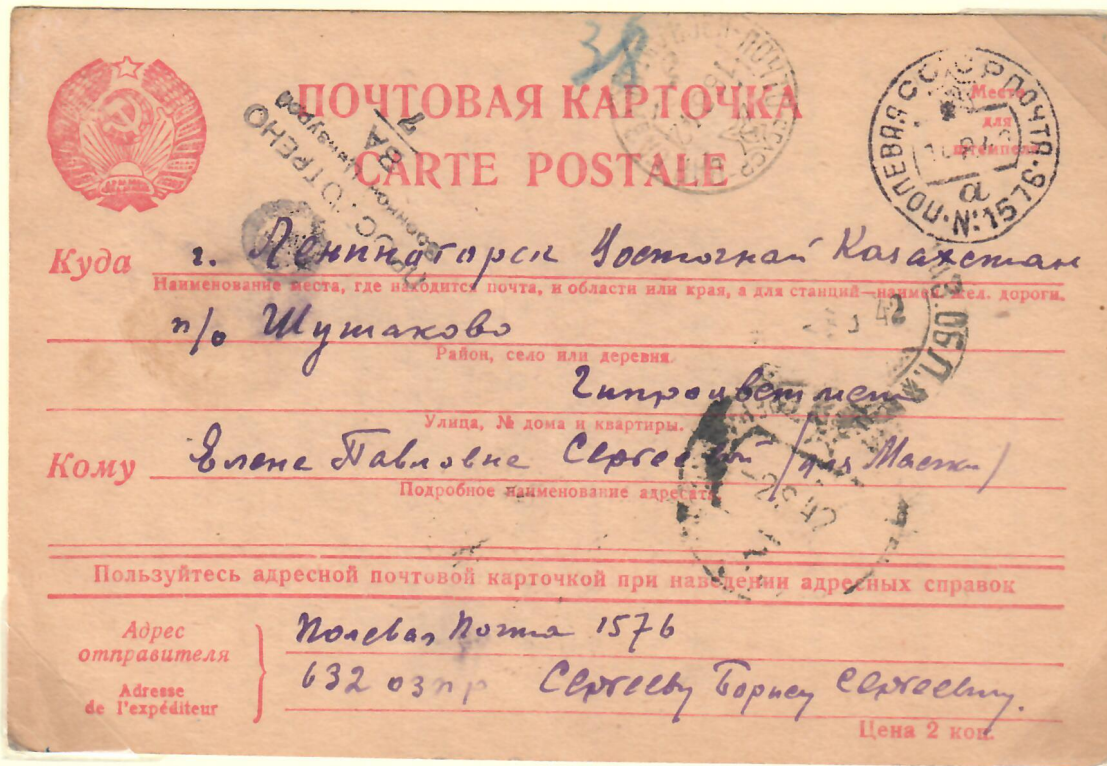 38
ПОЧТОВАЯ КАРТОЧКА
CARTE POSTALE
Место
для
штемпеля
ПОЛЕВАЯ ПОЧТА № 1576
а
ПРОСМОТРЕНО
Военной Цензурой
7
Куда г. Лениногорск Восточный Казахстан
Наименование места, где находится почта, и области или края, а для станций—наимен. жел. дороги.
п/о Шутаково
Район, село или деревня.
Гипроцветмет
Улица, № дома и квартиры.
Кому Елене Павловне Сергеевой /для Маски/
Подробное наименование адресата.
42
ОБЛ.
Пользуйтесь адресной почтовой карточкой при наведении адресных справок
Адрес
отправителя
Adresse
de l'expéditeur
Полевая Почта 1576
632 озпр Сергееву Борису Сергеевичу.
Цена 2 коп.